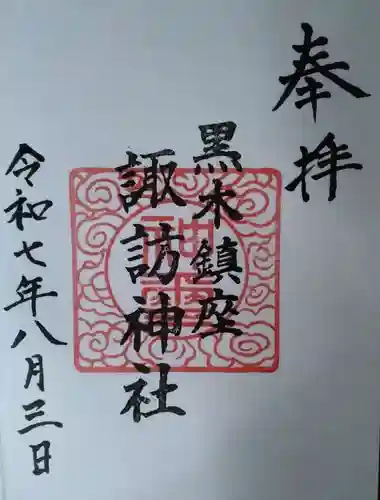 奉拝
黒木鎮座
諏訪神社
令和七年八月三日